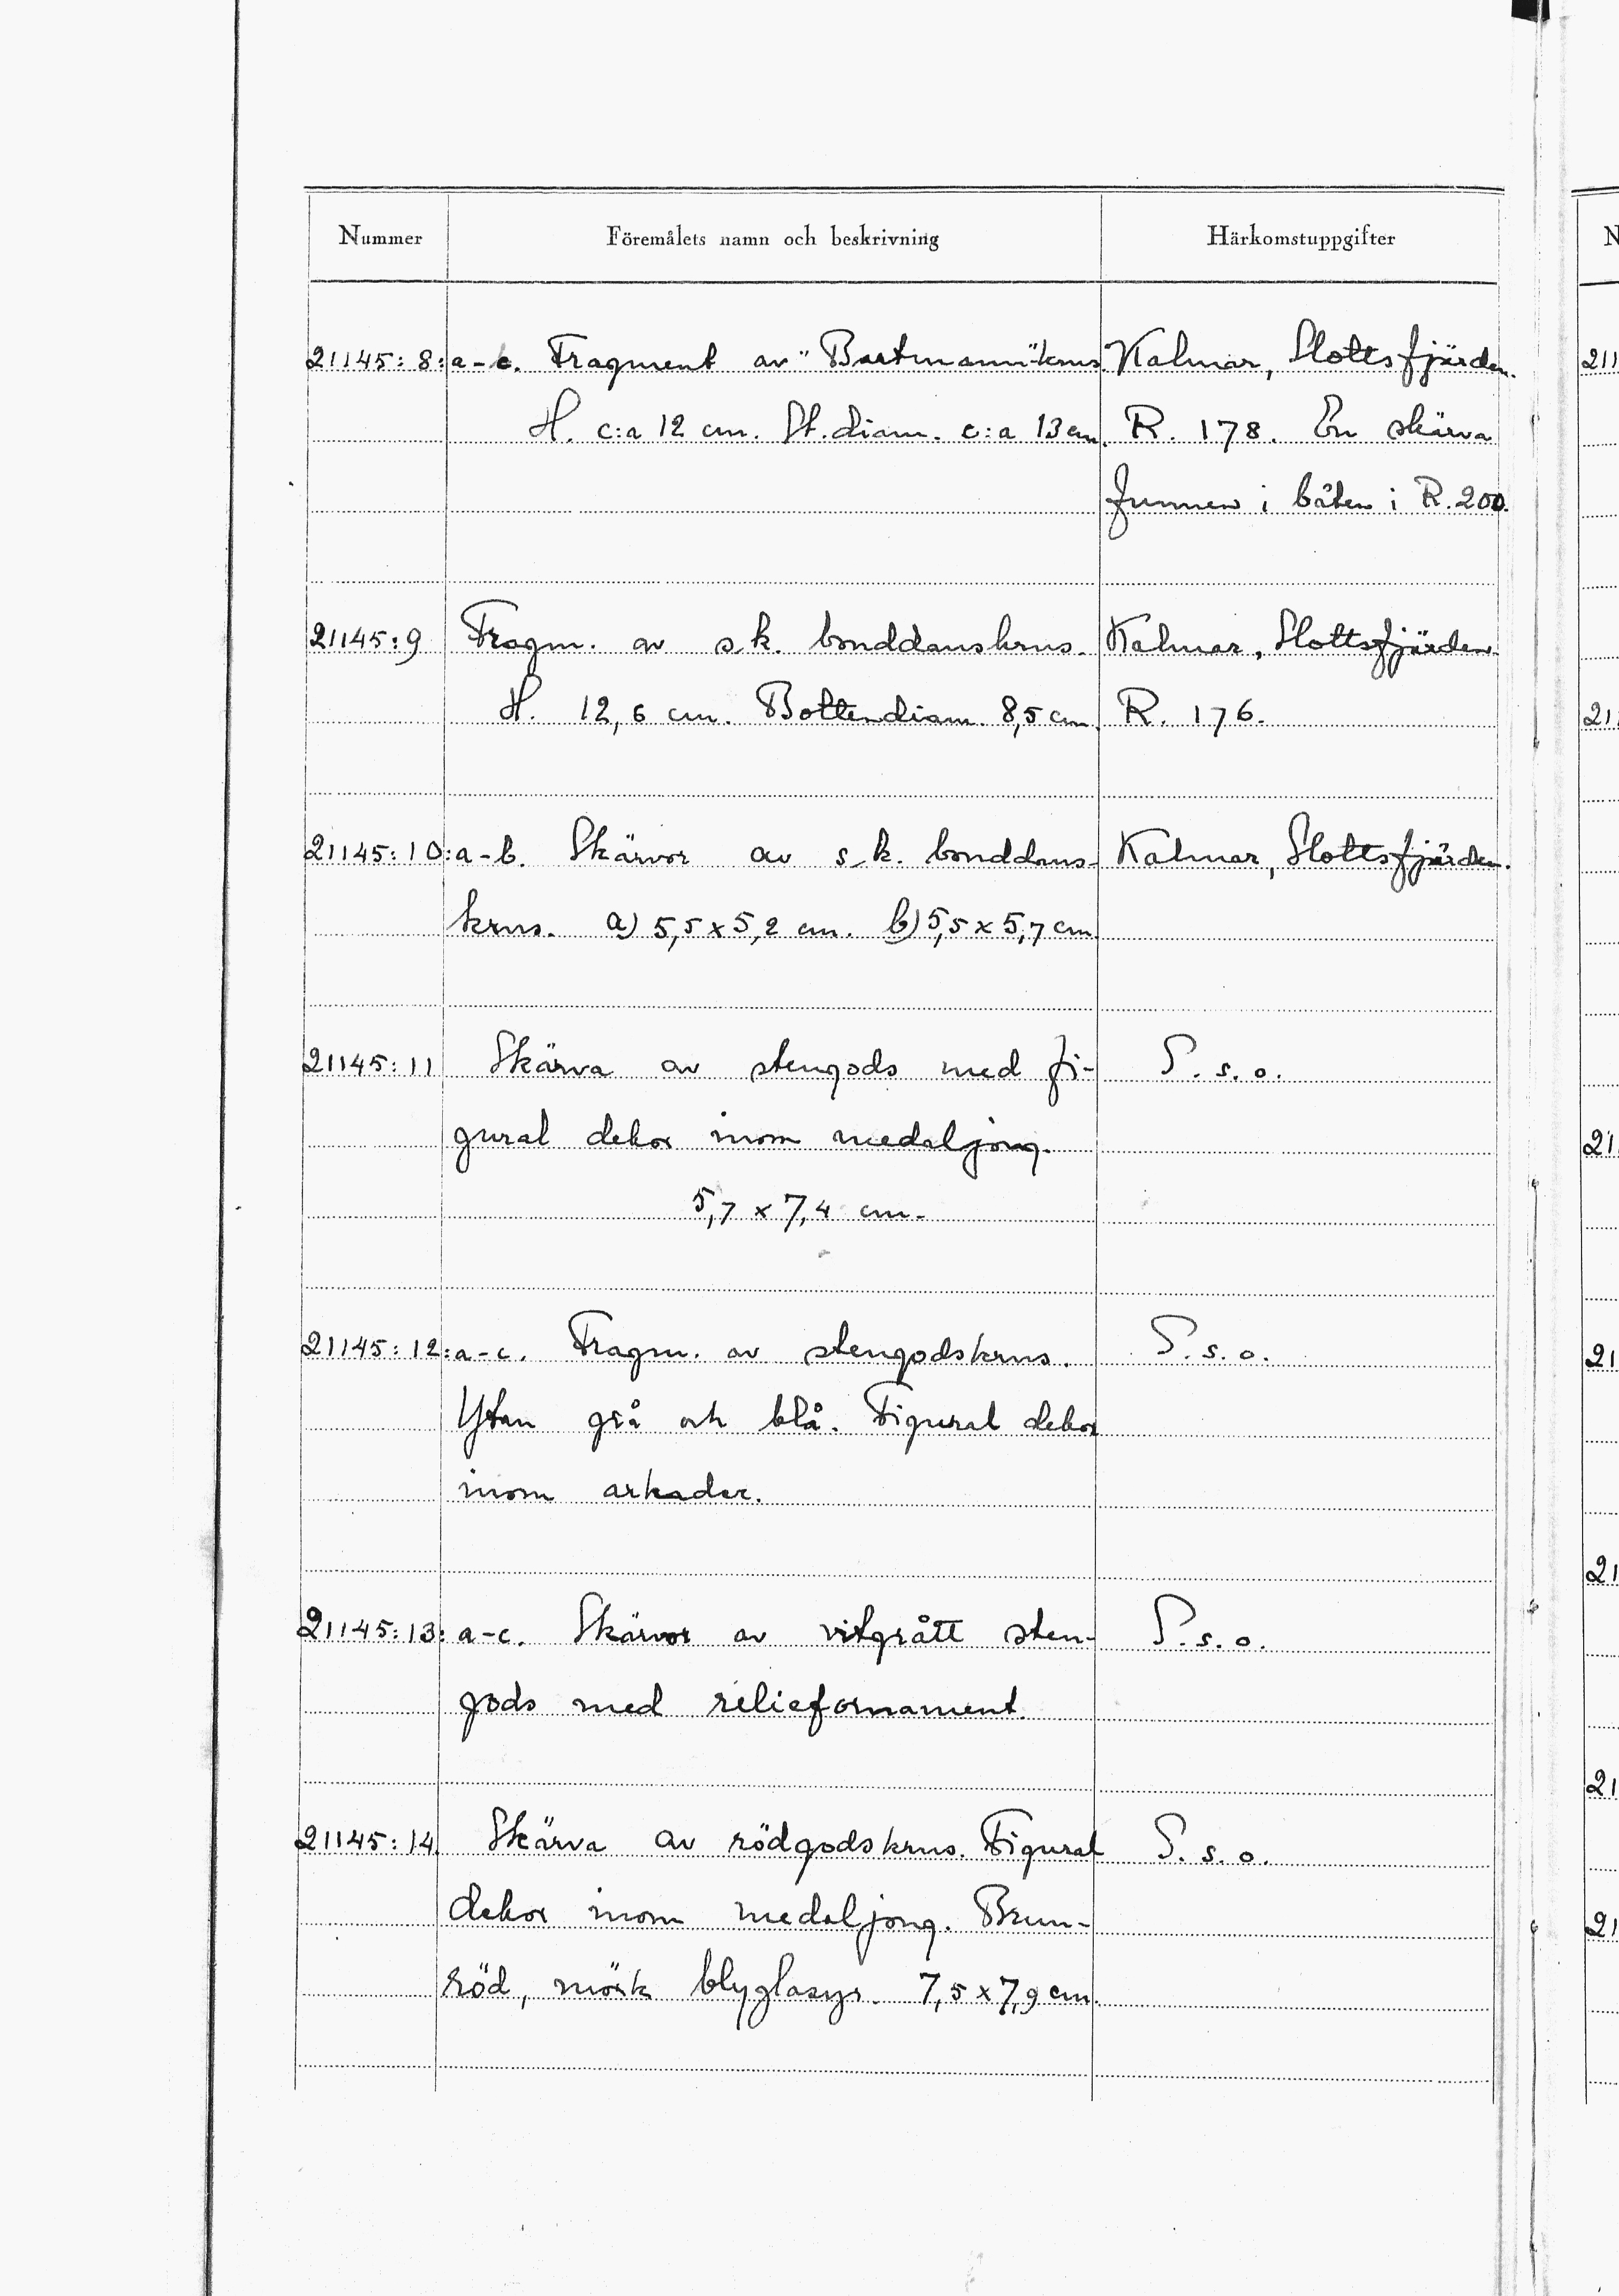 Nummer Föremålets namn och beskrivning Härkomstuppgifter
21145:8: a-c. Fragment av "Bartmann"krus. Kalmar, Slottsfjärden.
H. c:a 12 cm. St. diam. c:a 13 cm. R. 178. En skärva
funnen i båten i R. 200.
21145:9 Fragm. av s.k. bonddanskrus. Kalmar, Slottsfjärden.
H. 12,6 cm. Bottendiam. 8,5 cm. R. 176.
21145:10: a-b. Skärvor av s.k. bonddans- Kalmar, Slottsfjärden.
krus. a) 5,5 x 5,2 cm. b) 5,5 x 5,7 cm
21145:11 Skärva av stengods med fi- S. s. o.
gural dekor inom medaljong.
5,7 x 7,4 cm.
21145:12: a-c. Fragm. av stengodskrus. S. s. o.
Ytan grå och blå. Figural dekor
inom arkader.
21145:13: a-c. Skärvor av vitgrått sten- S. s. o.
gods med reliefornament.
21145:14. Skärva av rödgodskrus. Figural S. s. o.
dekor inom medaljong. Brun-
röd, mörk blyglasyr. 7,5 x 7,9 cm.